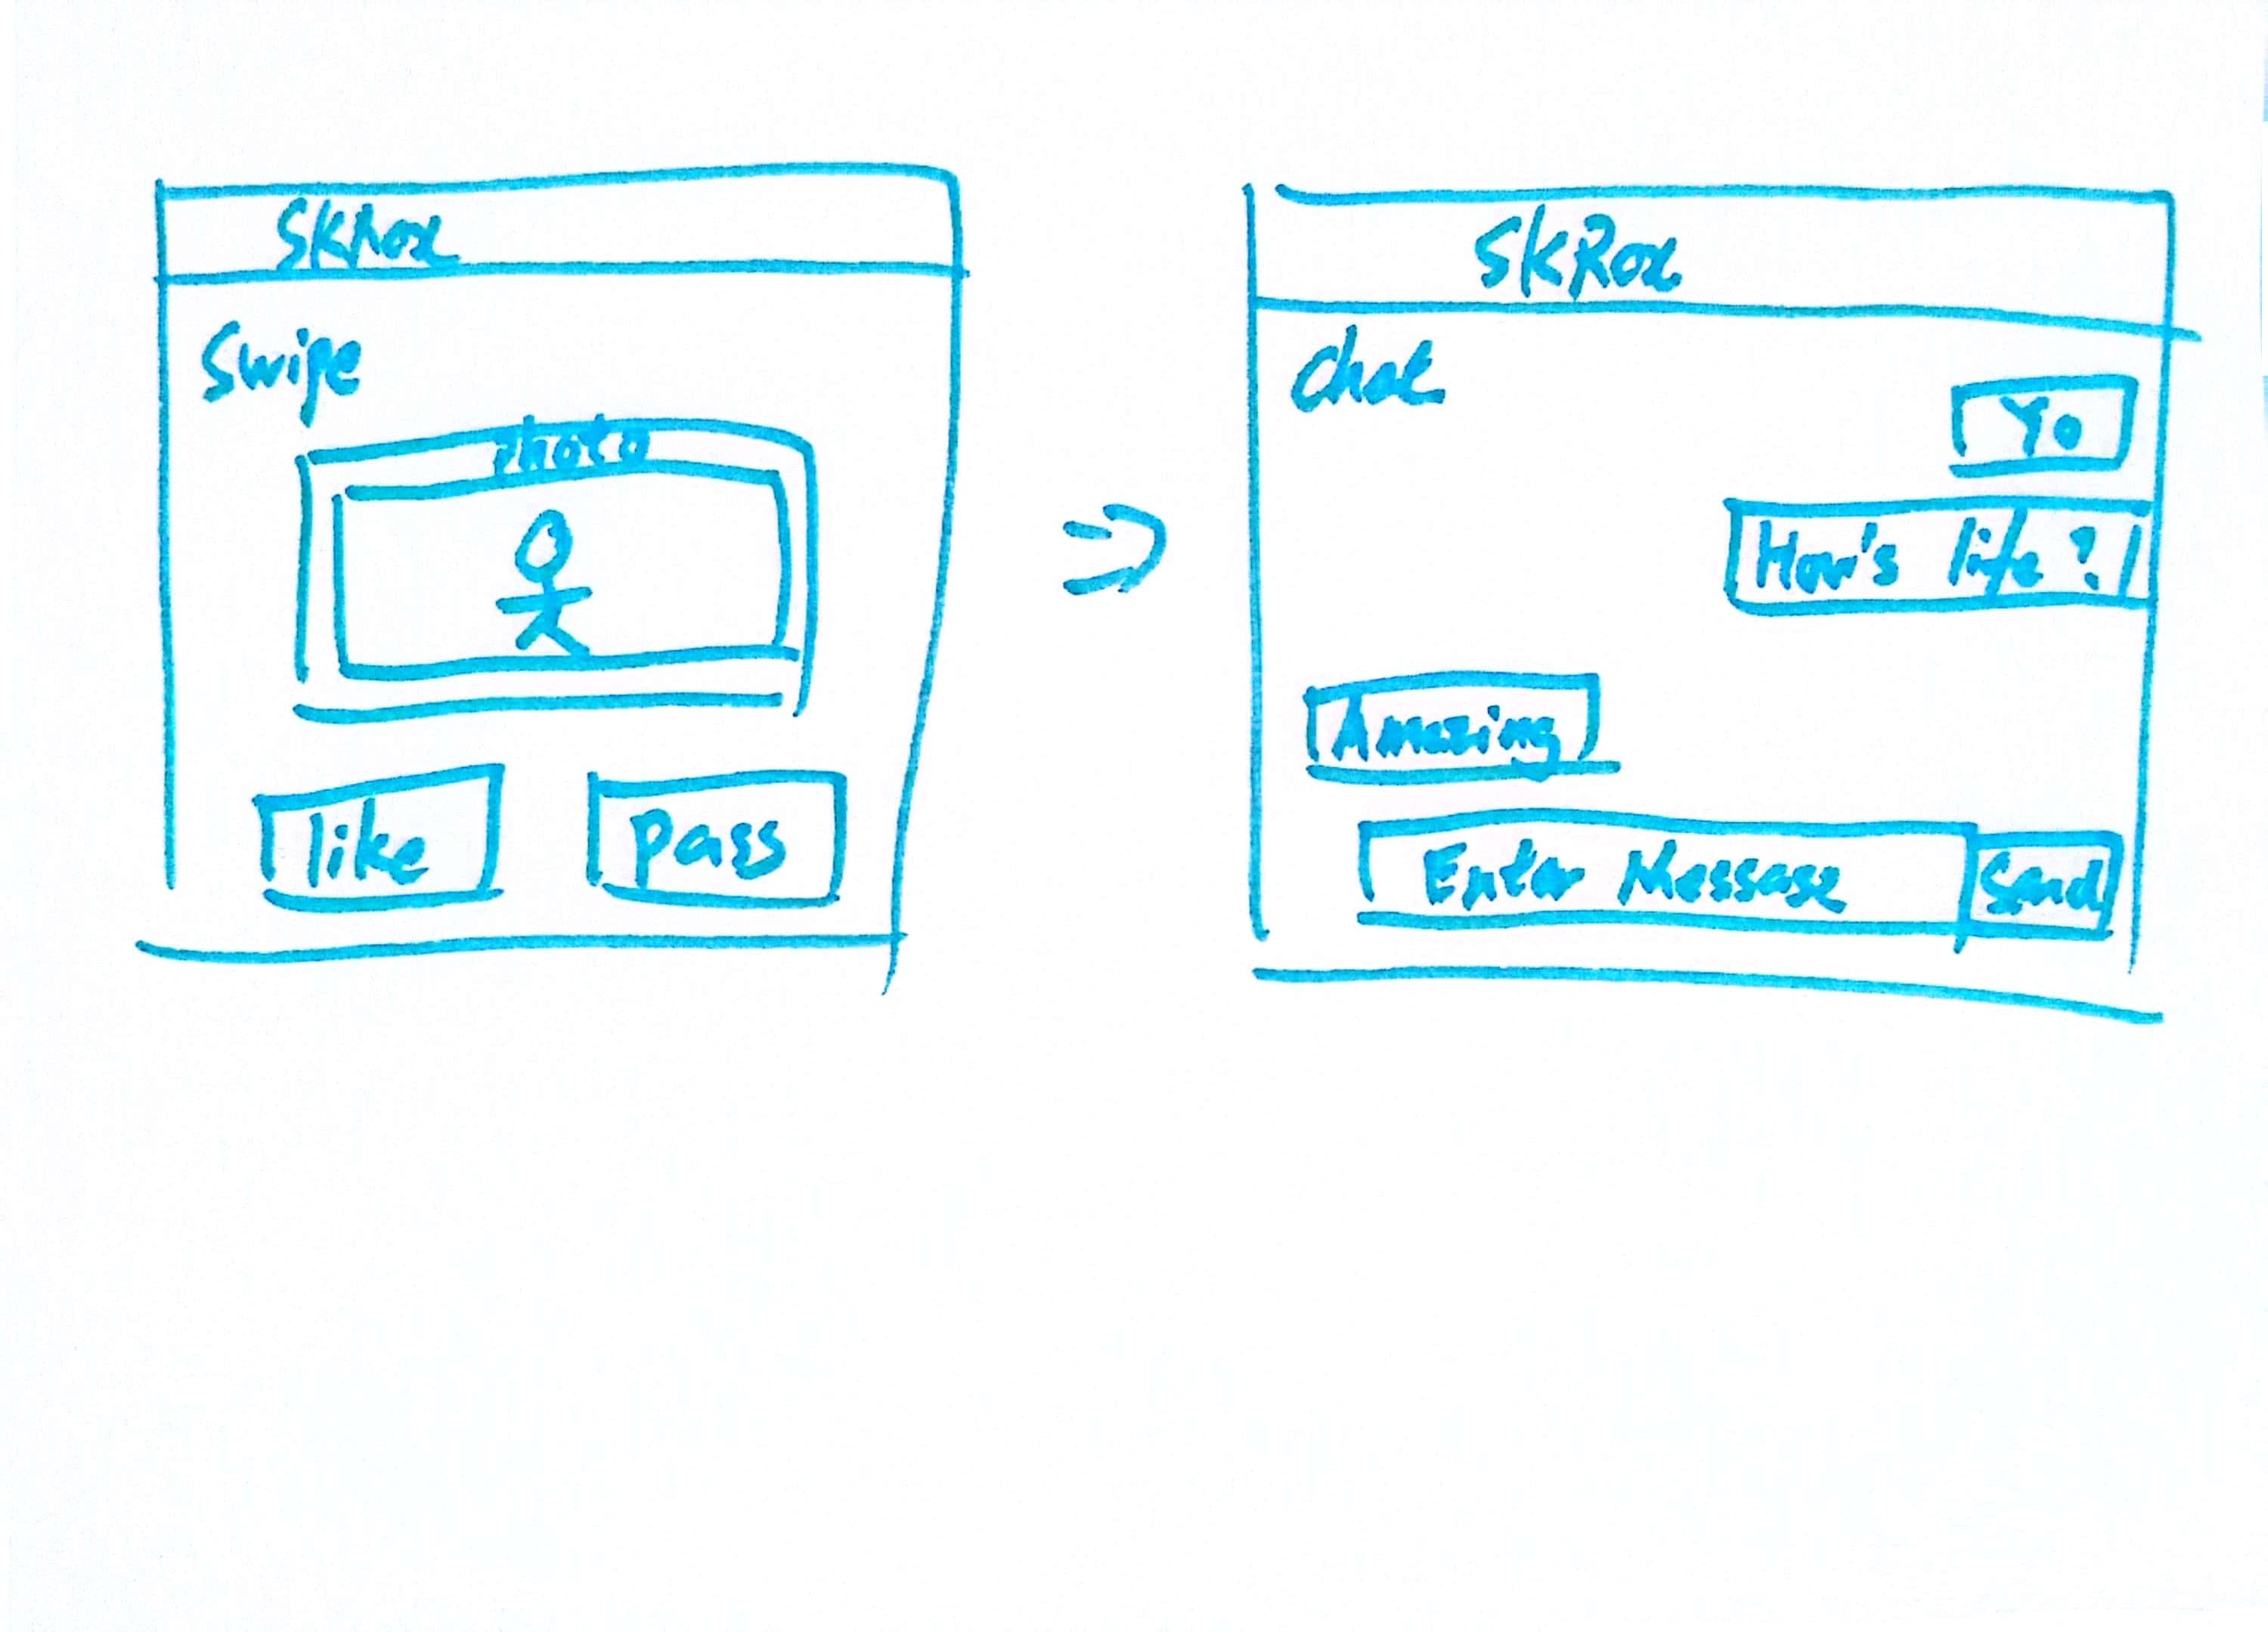 SKRox
Swipe
Photo
like
pass
SKRox
Chat
Yo
How's life?
Amazing
Enter Message
Send